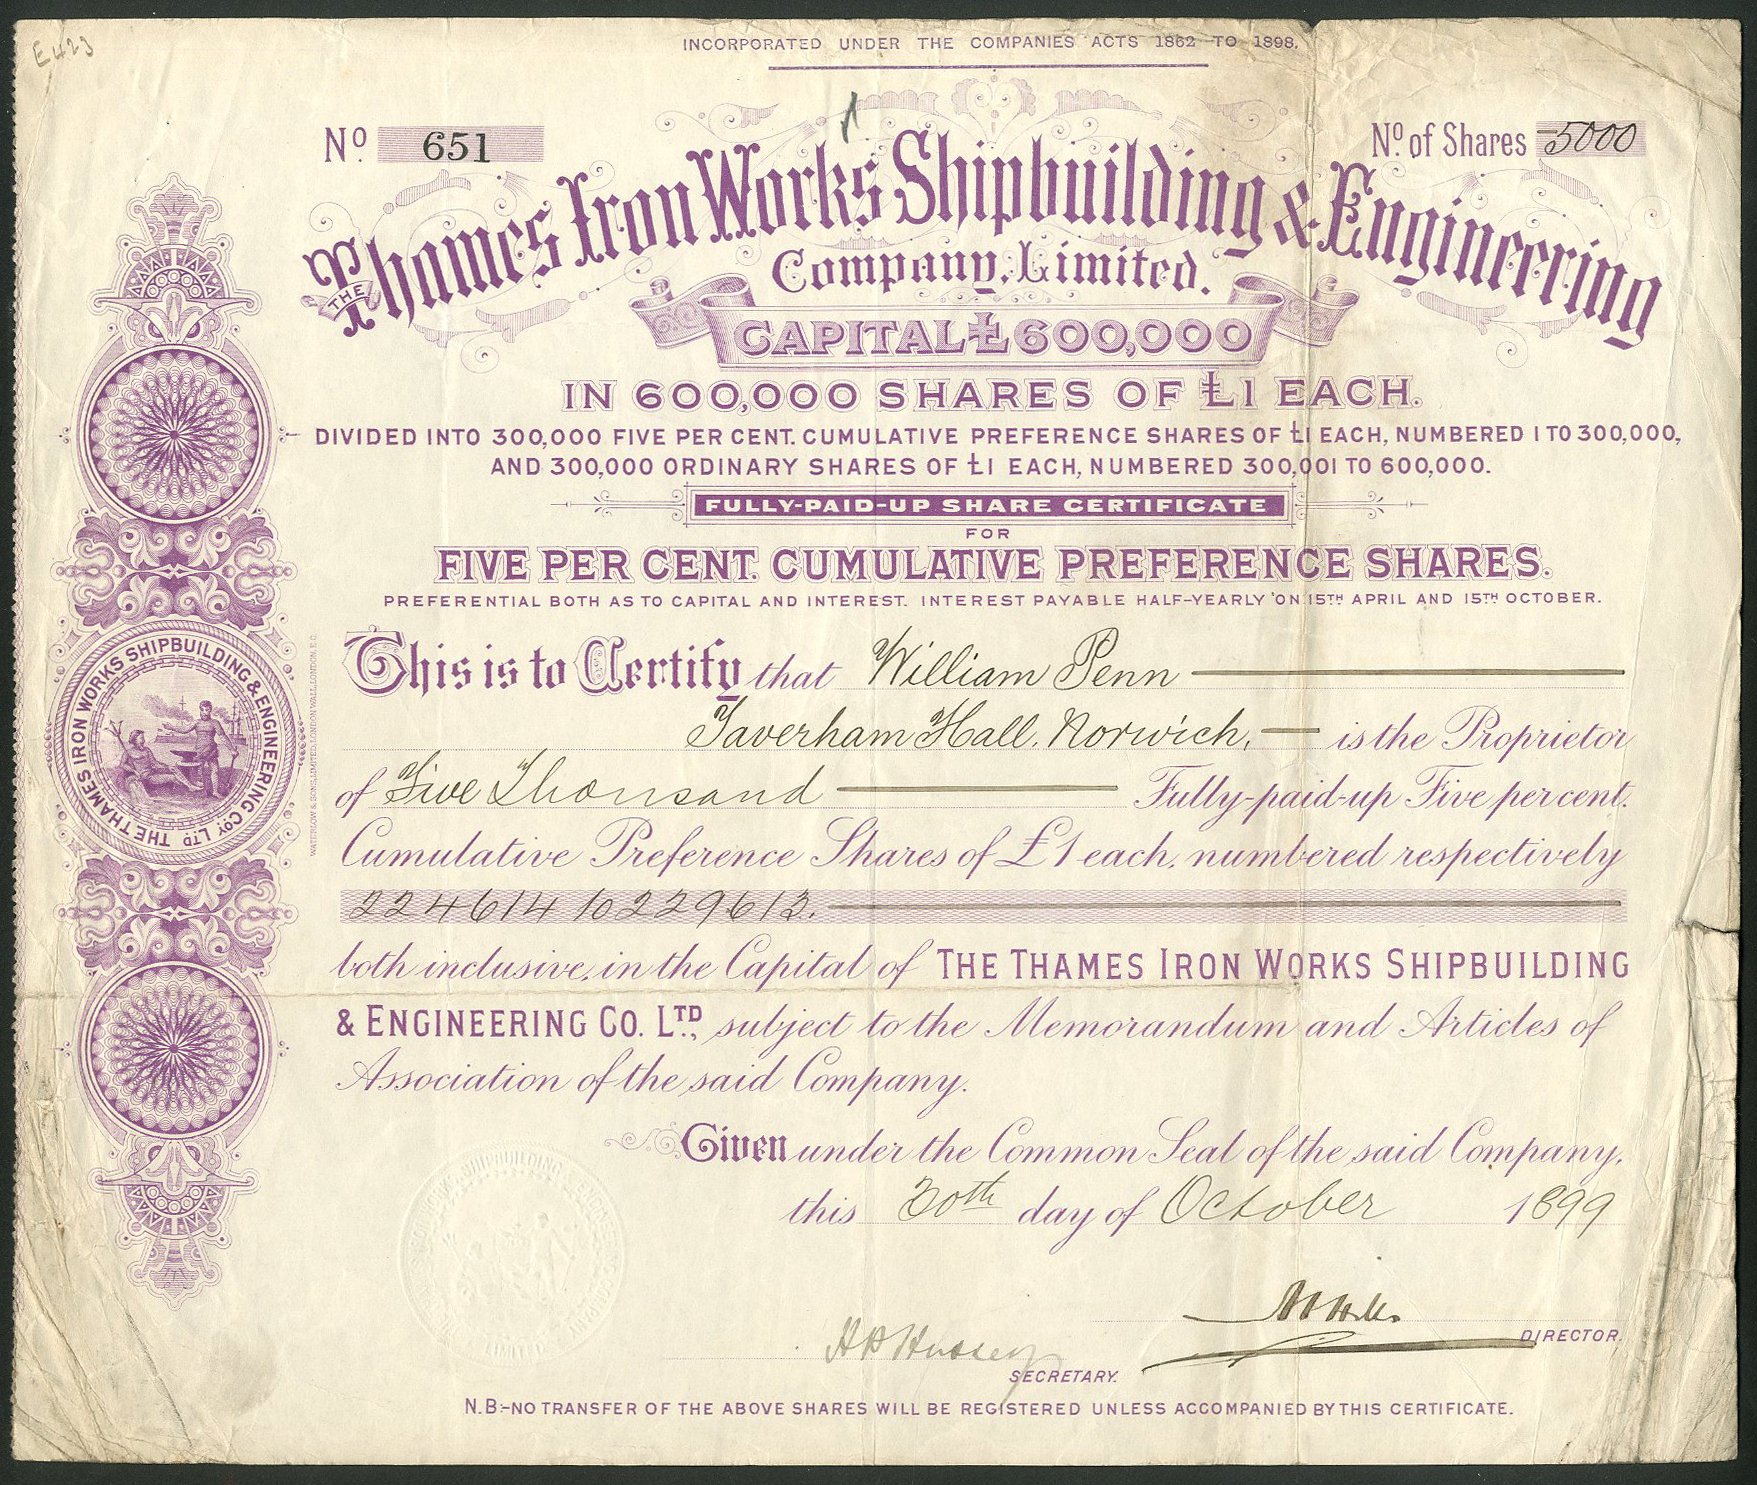 E423
INCORPORATED UNDER THE COMPANIES ACTS 1862 TO 1898.
No. 651
No. of Shares 5000
THE Thames Iron Works Shipbuilding & Engineering
Company, Limited.
CAPITAL £600,000
IN 600,000 SHARES OF £1 EACH.
DIVIDED INTO 300,000 FIVE PER CENT. CUMULATIVE PREFERENCE SHARES OF £1 EACH, NUMBERED 1 TO 300,000,
AND 300,000 ORDINARY SHARES OF £1 EACH, NUMBERED 300,001 TO 600,000.
FULLY-PAID-UP SHARE CERTIFICATE
FOR
FIVE PER CENT. CUMULATIVE PREFERENCE SHARES.
PREFERENTIAL BOTH AS TO CAPITAL AND INTEREST. INTEREST PAYABLE HALF-YEARLY ON 15TH APRIL AND 15TH OCTOBER.
This is to Certify that William Penn
Taverham Hall, Norwich, is the Proprietor
of Five Thousand Fully-paid-up Five per cent.
Cumulative Preference Shares of £1 each, numbered respectively
224614 to 229613.
both inclusive, in the Capital of THE THAMES IRON WORKS SHIPBUILDING
& ENGINEERING CO. LTD., subject to the Memorandum and Articles of
Association of the said Company.
Given under the Common Seal of the said Company,
this 30th day of October 1899
DIRECTOR.
H P Hussey
SECRETARY.
N.B-NO TRANSFER OF THE ABOVE SHARES WILL BE REGISTERED UNLESS ACCOMPANIED BY THIS CERTIFICATE.
THE THAMES IRON WORKS SHIPBUILDING & ENGINEERING COY. LTD
WATERLOW & SONS, LIMITED, LONDON WALL, LONDON, E.C.